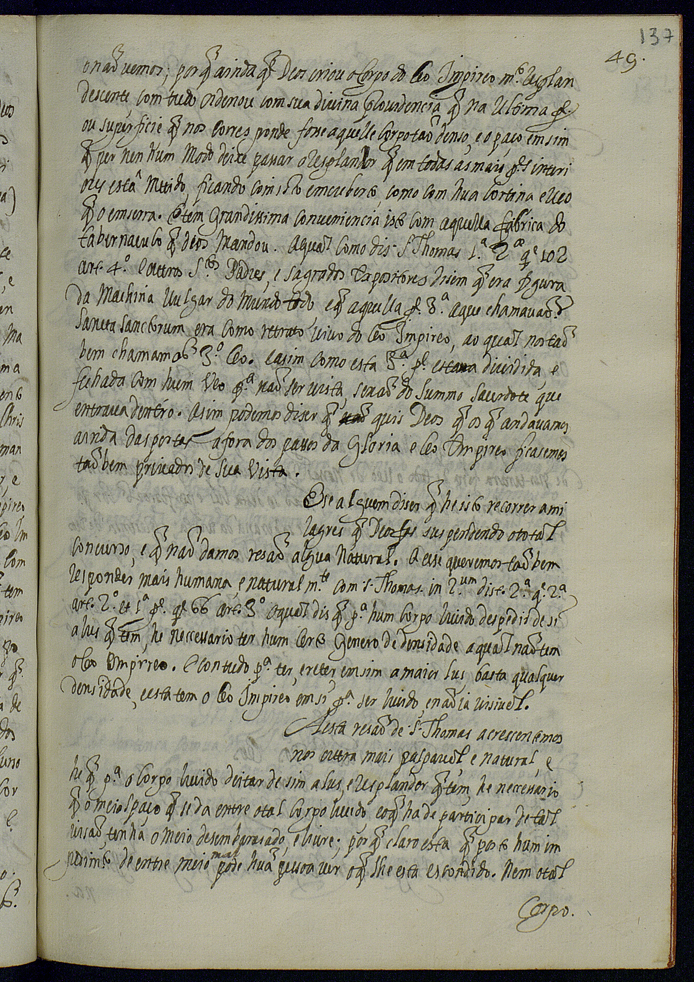 137
49.
o naõ vemos; porq̃ ainda q̃ Deos criou o Corpo do Ceo Impireo m.to resplan
descente com tudo ordenou com sua divina Providencia q̃ na ultima p.e
ou superficie q̃ nos corres ponde fosse aquelle Corpo taõ denso, e opaco em sim
q̃ per nen hum Modo deixe passar o resplandor q̃ em todas as mais p.es interi
ores està Metido, ficando com isto emcuberto como com hũa Cortina e veo
q̃ o emserra. E tem Grandissima conveniencia isto com aquella fabrica do
tabernaculo q̃ Deos Mandou. Aqual como dis S. Thomas 1.ª 2.ae q.e 102
art. 4.º e outros S.tos Padres, e sagrados expositores disem q̃ era figura
da Machina vulgar do mundo todo e q̃ aquella p.e 3.ª aque chamavaõ
Sancta Sanctorum era como retrato vivo do Ceo Impireo, ao qual nos taõ
bem chamamos 3.º Ceo. e asim como esta 3.ª p.e estava dividida, e
fechada com hum veo p.ª naõ ser vista, senaõ do Summo Sacerdote que
entrava dentro. Asim podemos diser q̃ quis Deos q̃ os q̃ andavamos
ainda das portas afora dos passos da Gloria e Ceo Impireo ficasemos
taõ bem privados de Sua Vista.
E se alguem diser q̃ he isto recorrer a mi
lagres q̃ Deos fas suspendendo o total
concurso, e q̃ naõ damos resaõ algũa Natural. A esse queremos taõ bem
responder mais humana e natural m.te com S. Thomas in 2.um dist. 2.ª q.e 2.ª
art. 2.º e 1.ª p.e q.e 66 art. 3.º aqual dis q̃ p.ª hum Corpo lucido despedir de si
a lus q̃ tem, he neccesario ter hum certo Genero de densidade a qual naõ tem
o Ceo Empireo. E com tudo p.ª ter, e reter em sim a maior lus, basta qualquer
densidade, e esta tem o Ceo Impireo em si p.ª ser lucido, e naõ invisivel.
A esta resaõ de S. Thomas acrescentamos
nos outra mais palpavel e natural, e
he q̃ p.ª o Corpo lucido deitar de sim a lus, e resplandor q̃ tem, he necesario
q̃ o meio espaço q̃ se da entre o tal Corpo lucido e o q̃ ha de participar de tal
visaõ tenha o meio desembaraçado, e livre; porq̃ claro esta q̃ posto hum im
pedimto de entre meio mal pode hũa pessoa ver o q̃ lhe esta escondido. Nem o tal
Corpo.